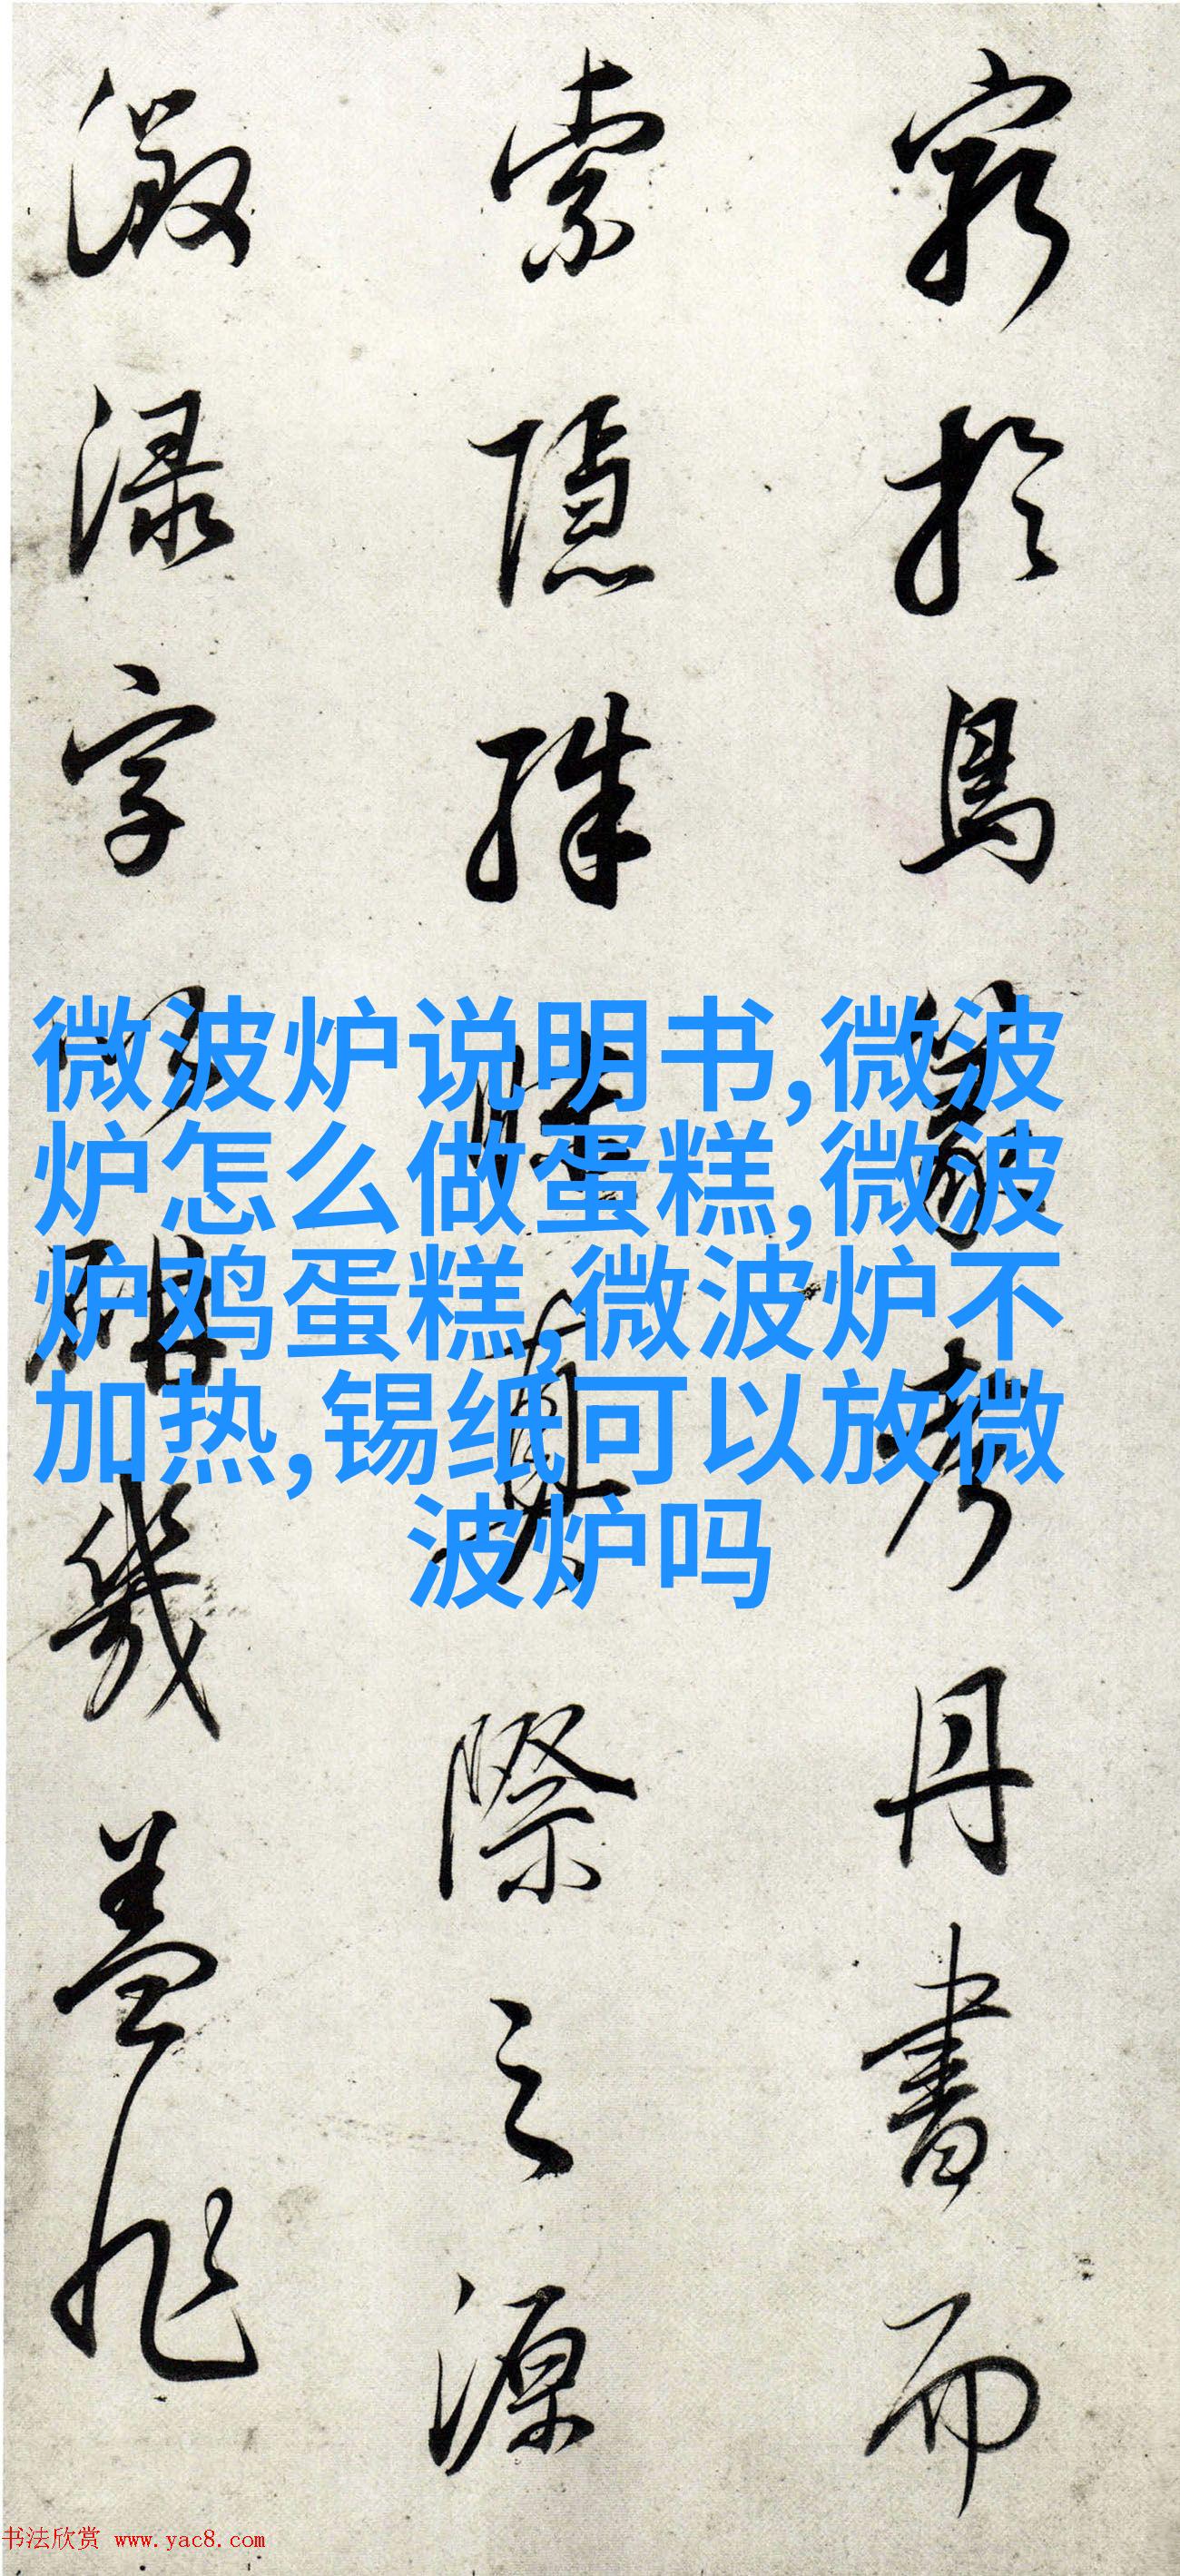 窮於鳥篆考丹書而
索隱殊昧真際之源
渌字幾蓋非
微波炉说明书,微波
炉怎么做蛋糕,微波
炉鸡蛋糕,微波炉不
加热,锡纸可以放微
波炉吗
书法欣赏 www.yac8.com